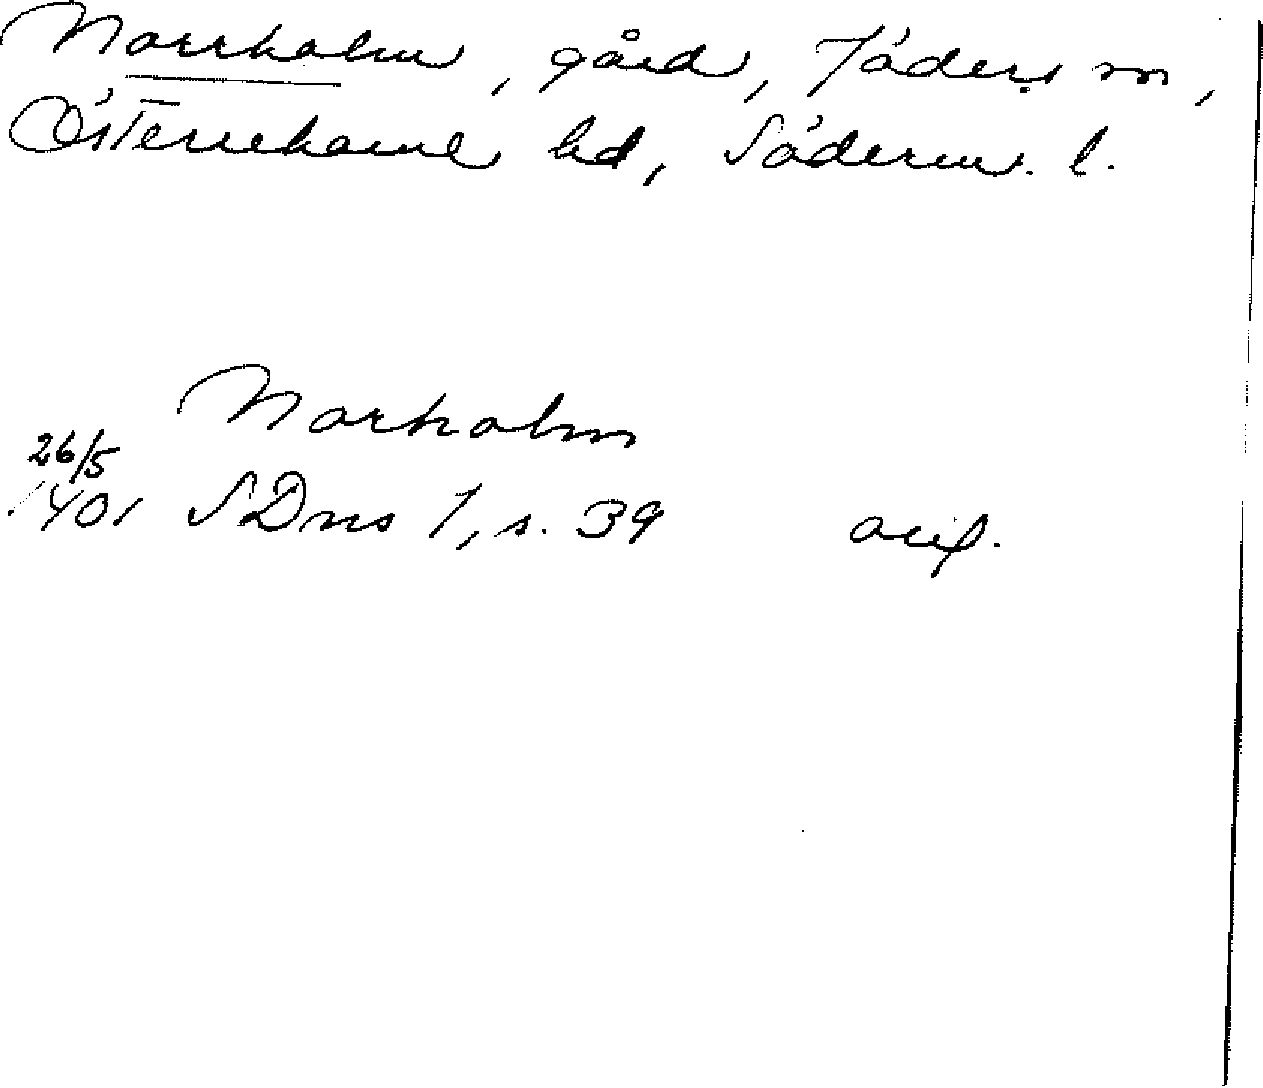 Norrholm, gård, Jäders sn,
Österrekarne hd, Söderm. l.
Norholm
26/5
1401 SDns 1, s. 39 orig.